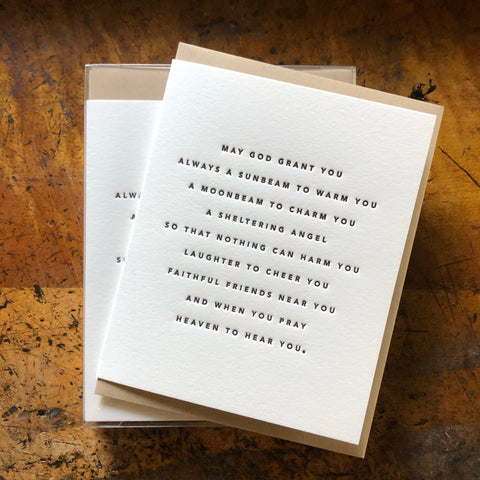 MAY GOD GRANT YOU
ALWAYS A SUNBEAM TO WARM YOU
A MOONBEAM TO CHARM YOU
A SHELTERING ANGEL
SO THAT NOTHING CAN HARM YOU
LAUGHTER TO CHEER YOU
FAITHFUL FRIENDS NEAR YOU
AND WHEN YOU PRAY
HEAVEN TO HEAR YOU.